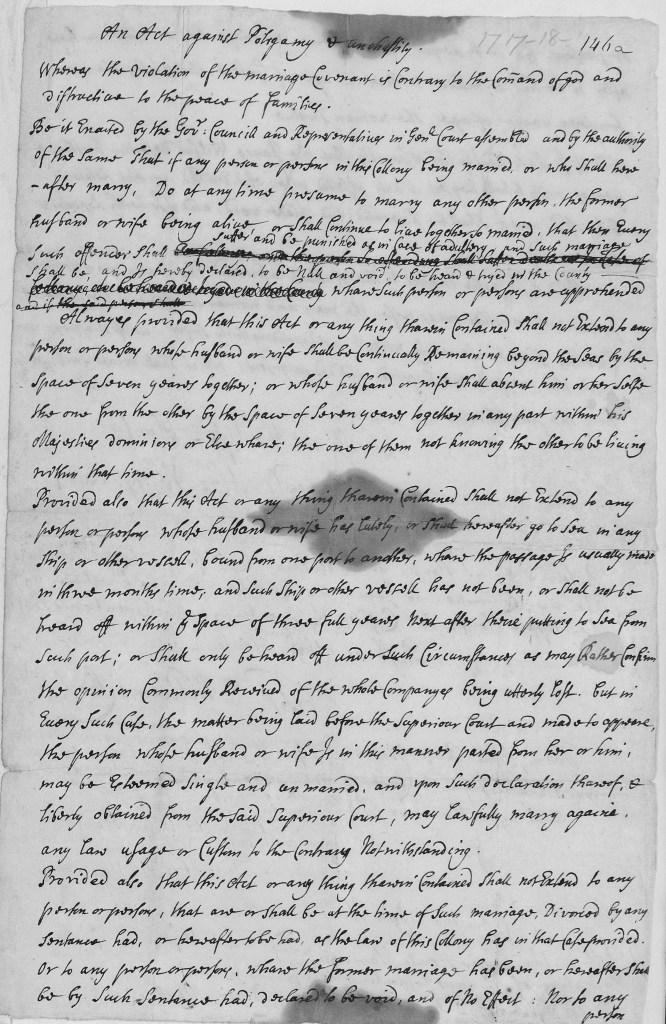 An Act against Poligamy & unchastity. 1717-18- 146a
Whereas the violation of the marriage Covenant is Contrary to the Comand of god and
distructive to the peace of Families.
Be it Enacted by the Govr: Councill and Representatives in Genll Court assembled and by the authority
of the Same That if any person or persons in this Collony being married. or who Shall here
-after marry. Do at any time presume to marry any other person. the former
husband or wife being alive, or Shall Continue to live together so married, that then Every
Suffer, and be punished as in Case of adultery and Such marriage
Such offender Shall
Shall be, and Is hereby declared, to be Null and void, to be heard & tryed in the County
where Such person or persons are apprehended
and if the said persons
Alwayes provided that this Act or any thing tharein Contained Shall not Extend to any
person or persons whose husband or wife Shall be Continually Remaining beyond the Seas by the
Space of Seven yeares together; or whose husband or wife Shall absent him or her Selfe
the one from the other by the Space of Seven yeares together in any part within his
Majesties dominions or Elsewhare; the one of them not knowing the other to be living
within that time.
Provided also that this Act or any thing tharein Contained Shall not Extend to any
person or persons whose husband or wife has lately, or Shall hereafter go to Sea in any
Ship or other vessell, bound from one port to another, whare the passage Is usually made
in three months time; and Such Ship or other vessell has not been, or Shall not be
heard off within ye Space of three full yeares Next after theire putting to Sea from
Such port; or Shall only be heard off under Such Circumstances as may Rather Confirm
the opinion Commonly Received of the whole Companyes being utterly lost. but in
Every Such Case, the matter being laid before the Superiour Court and made to appeare,
the person whose husband or wife Is in this manner parted from her or him,
may be Esteemed Single and unmarried. and upon Such declaration thareof, &
liberty obtained from the Said Superiour Court, may lawfully marry againe.
any law usage or Custom to the Contrary Notwithstanding.
Provided also that this Act or any thing tharein Contained Shall not Extend to any
person or persons, that are or Shall be at the time of Such marriage. Divorced by any
Sentance had, or hereafter to be had, as the law of this Collony has in that Case provided.
Or to any person or persons, whare the Former marriage has been, or hereafter Shall
be by Such Sentance had, declared to be void, and of No Effect: Nor to any
person